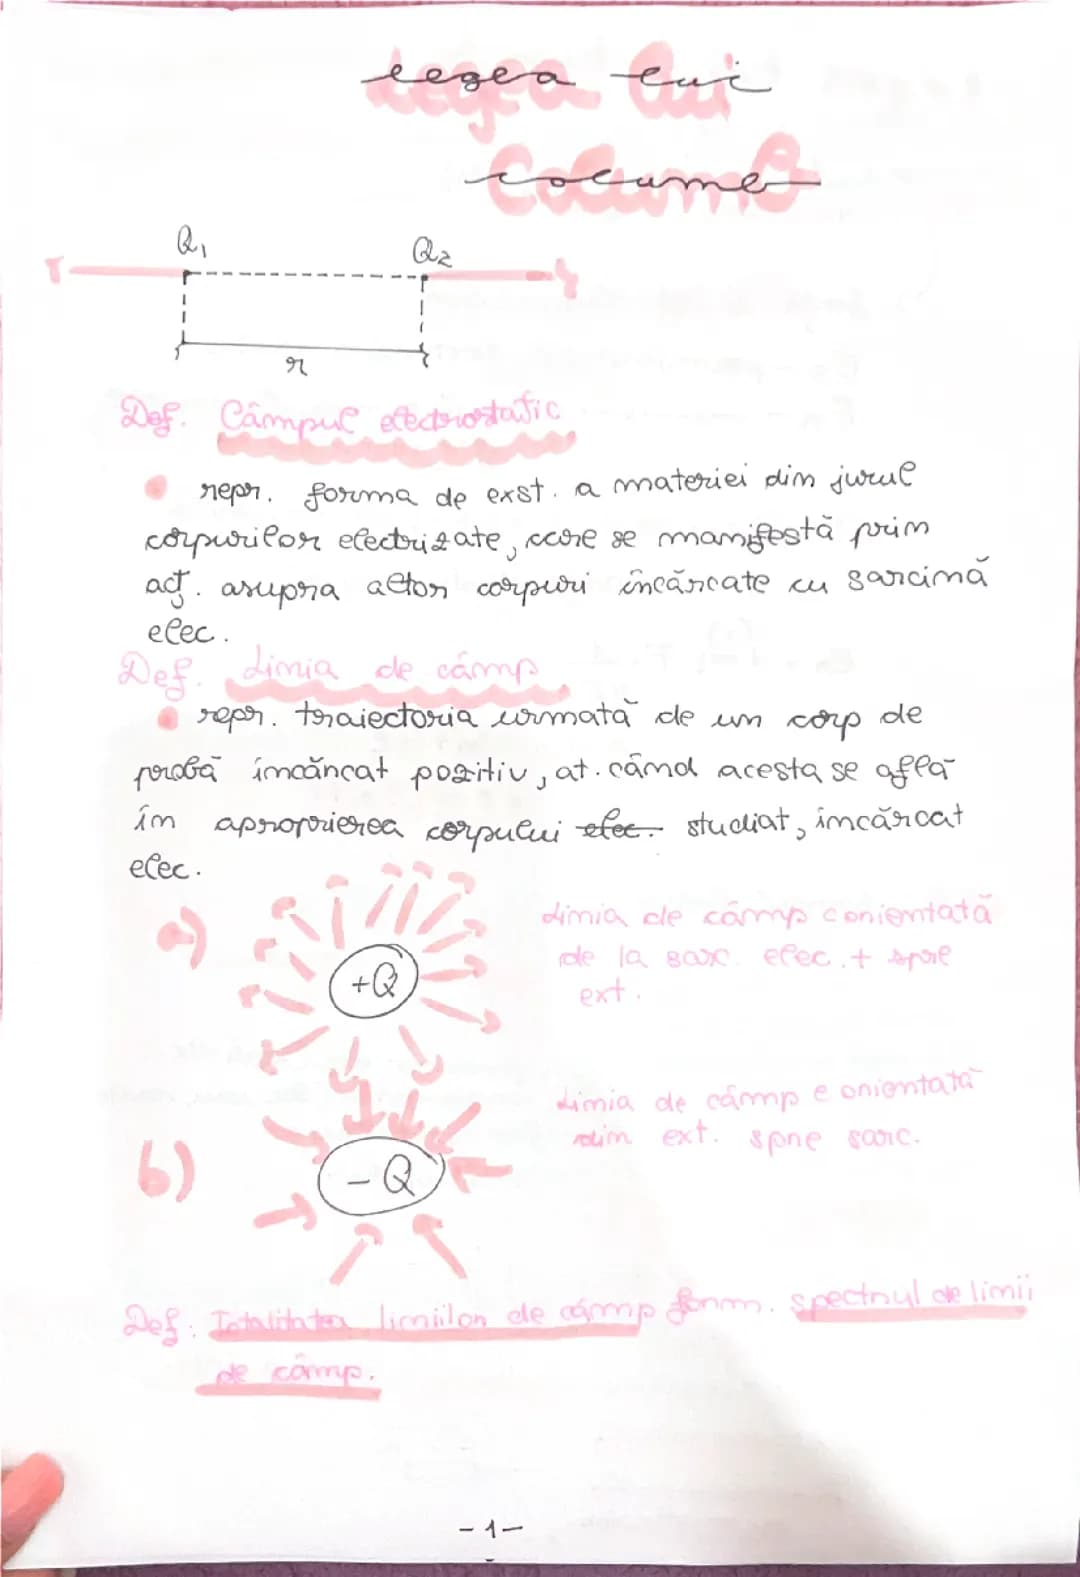 Legea lui
Columb
Q1 Q2
r
Def. Câmpul electrostatic
repr. forma de exst. a materiei din jurul
corpurilor electrizate, care se manifestă prin
acț. asupra altor corpuri încărcate cu sarcină
elec.
Def. Linia de câmp
repr. traiectoria urmată de un corp de
probă încărcat pozitiv, at. când acesta se află
în aproprierea corpului elec. studiat, încărcat
elec.
a)
+Q
Linia de câmp e orientată
de la sarc. elec. + spre
ext.
b)
- Q
Linia de câmp e orientată
din ext. spre sarc.
Def. Totalitatea liniilor de câmp form. spectrul de linii
de câmp.
- 1 -